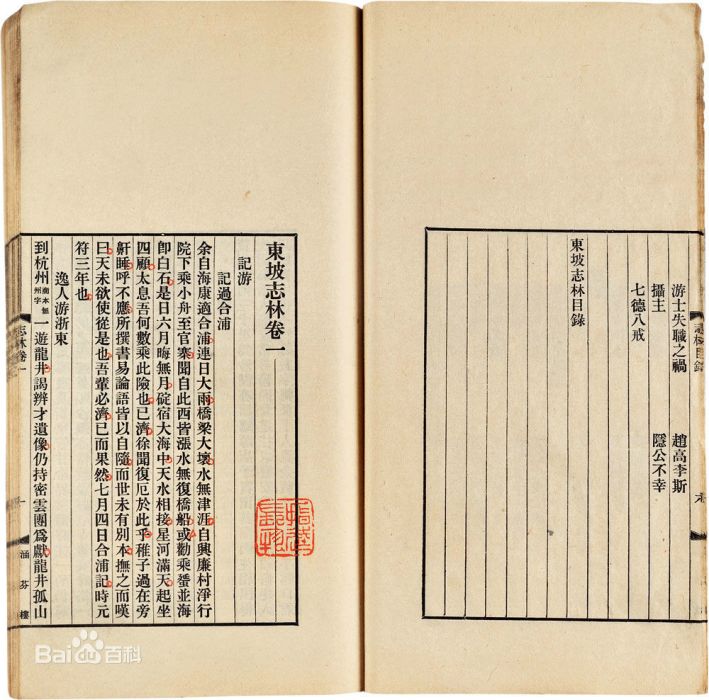 游士失職之禍　趙高李斯
攝主　隱公不幸
七德八戒
東坡志林目錄
東坡志林卷一
記游
記過合浦
余自海康適合浦連日大雨橋梁大壞水無津涯自興廉村淨行
院下乘小舟至官寨聞自此西皆漲水無復橋船或勸乘蜑並海
卽白石是日六月晦無月碇宿大海中天水相接星河滿天起坐
四顧太息吾何數乘此險也已濟徐聞復厄於此乎稚子過在旁
鼾睡呼不應所撰書易論語皆以自隨而世未有別本撫之而嘆
曰天未欲使從是也吾輩必濟已而果然七月四日合浦記時元
符三年也
逸人游浙東
到杭州商本無州字一遊龍井謁辨才遺像仍持密雲團爲獻龍井孤山
志林卷一　一　涵芬樓
Bai百科